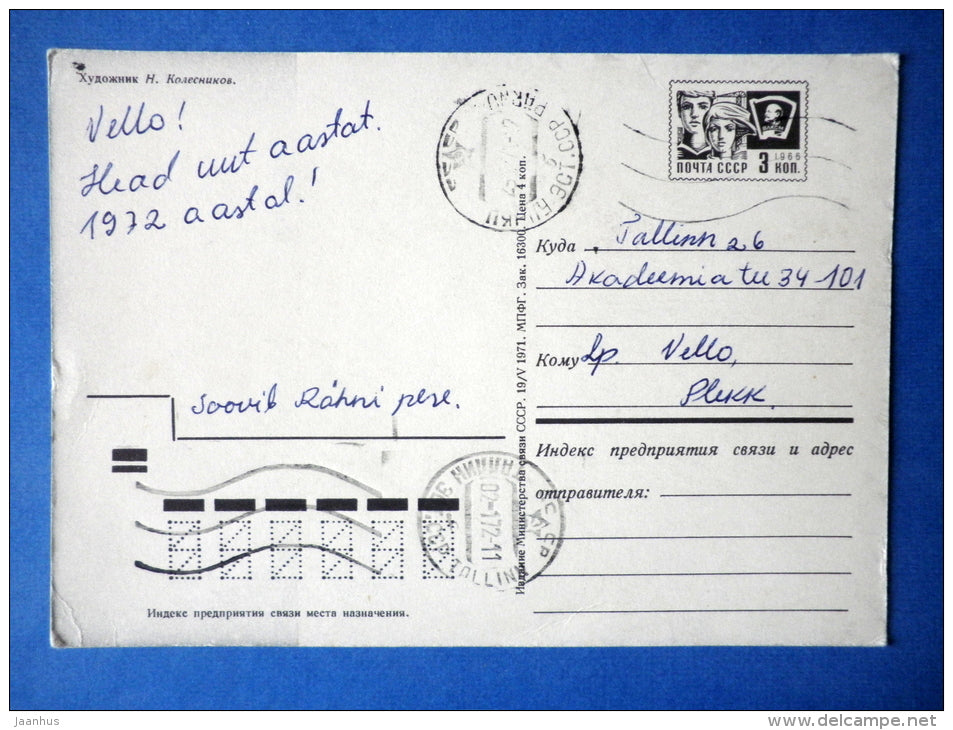 Художник Н. Колесников.
Vello!
Head uut aastat.
1972 aastal!
Soovib Rähni pere.
Индекс предприятия связи места назначения.
Издание Министерства связи СССР. 19/V 1971. МПФГ. Зак. 16300. Цена 4 коп.
1966
ПОЧТА СССР 3 КОП.
Куда Tallinn 26
Akadeemia tee 34-101
Кому Lp. Vello,
Plekk.
Индекс предприятия связи и адрес
отправителя:
TALLINN
Jaanhus
www.delcampe.net